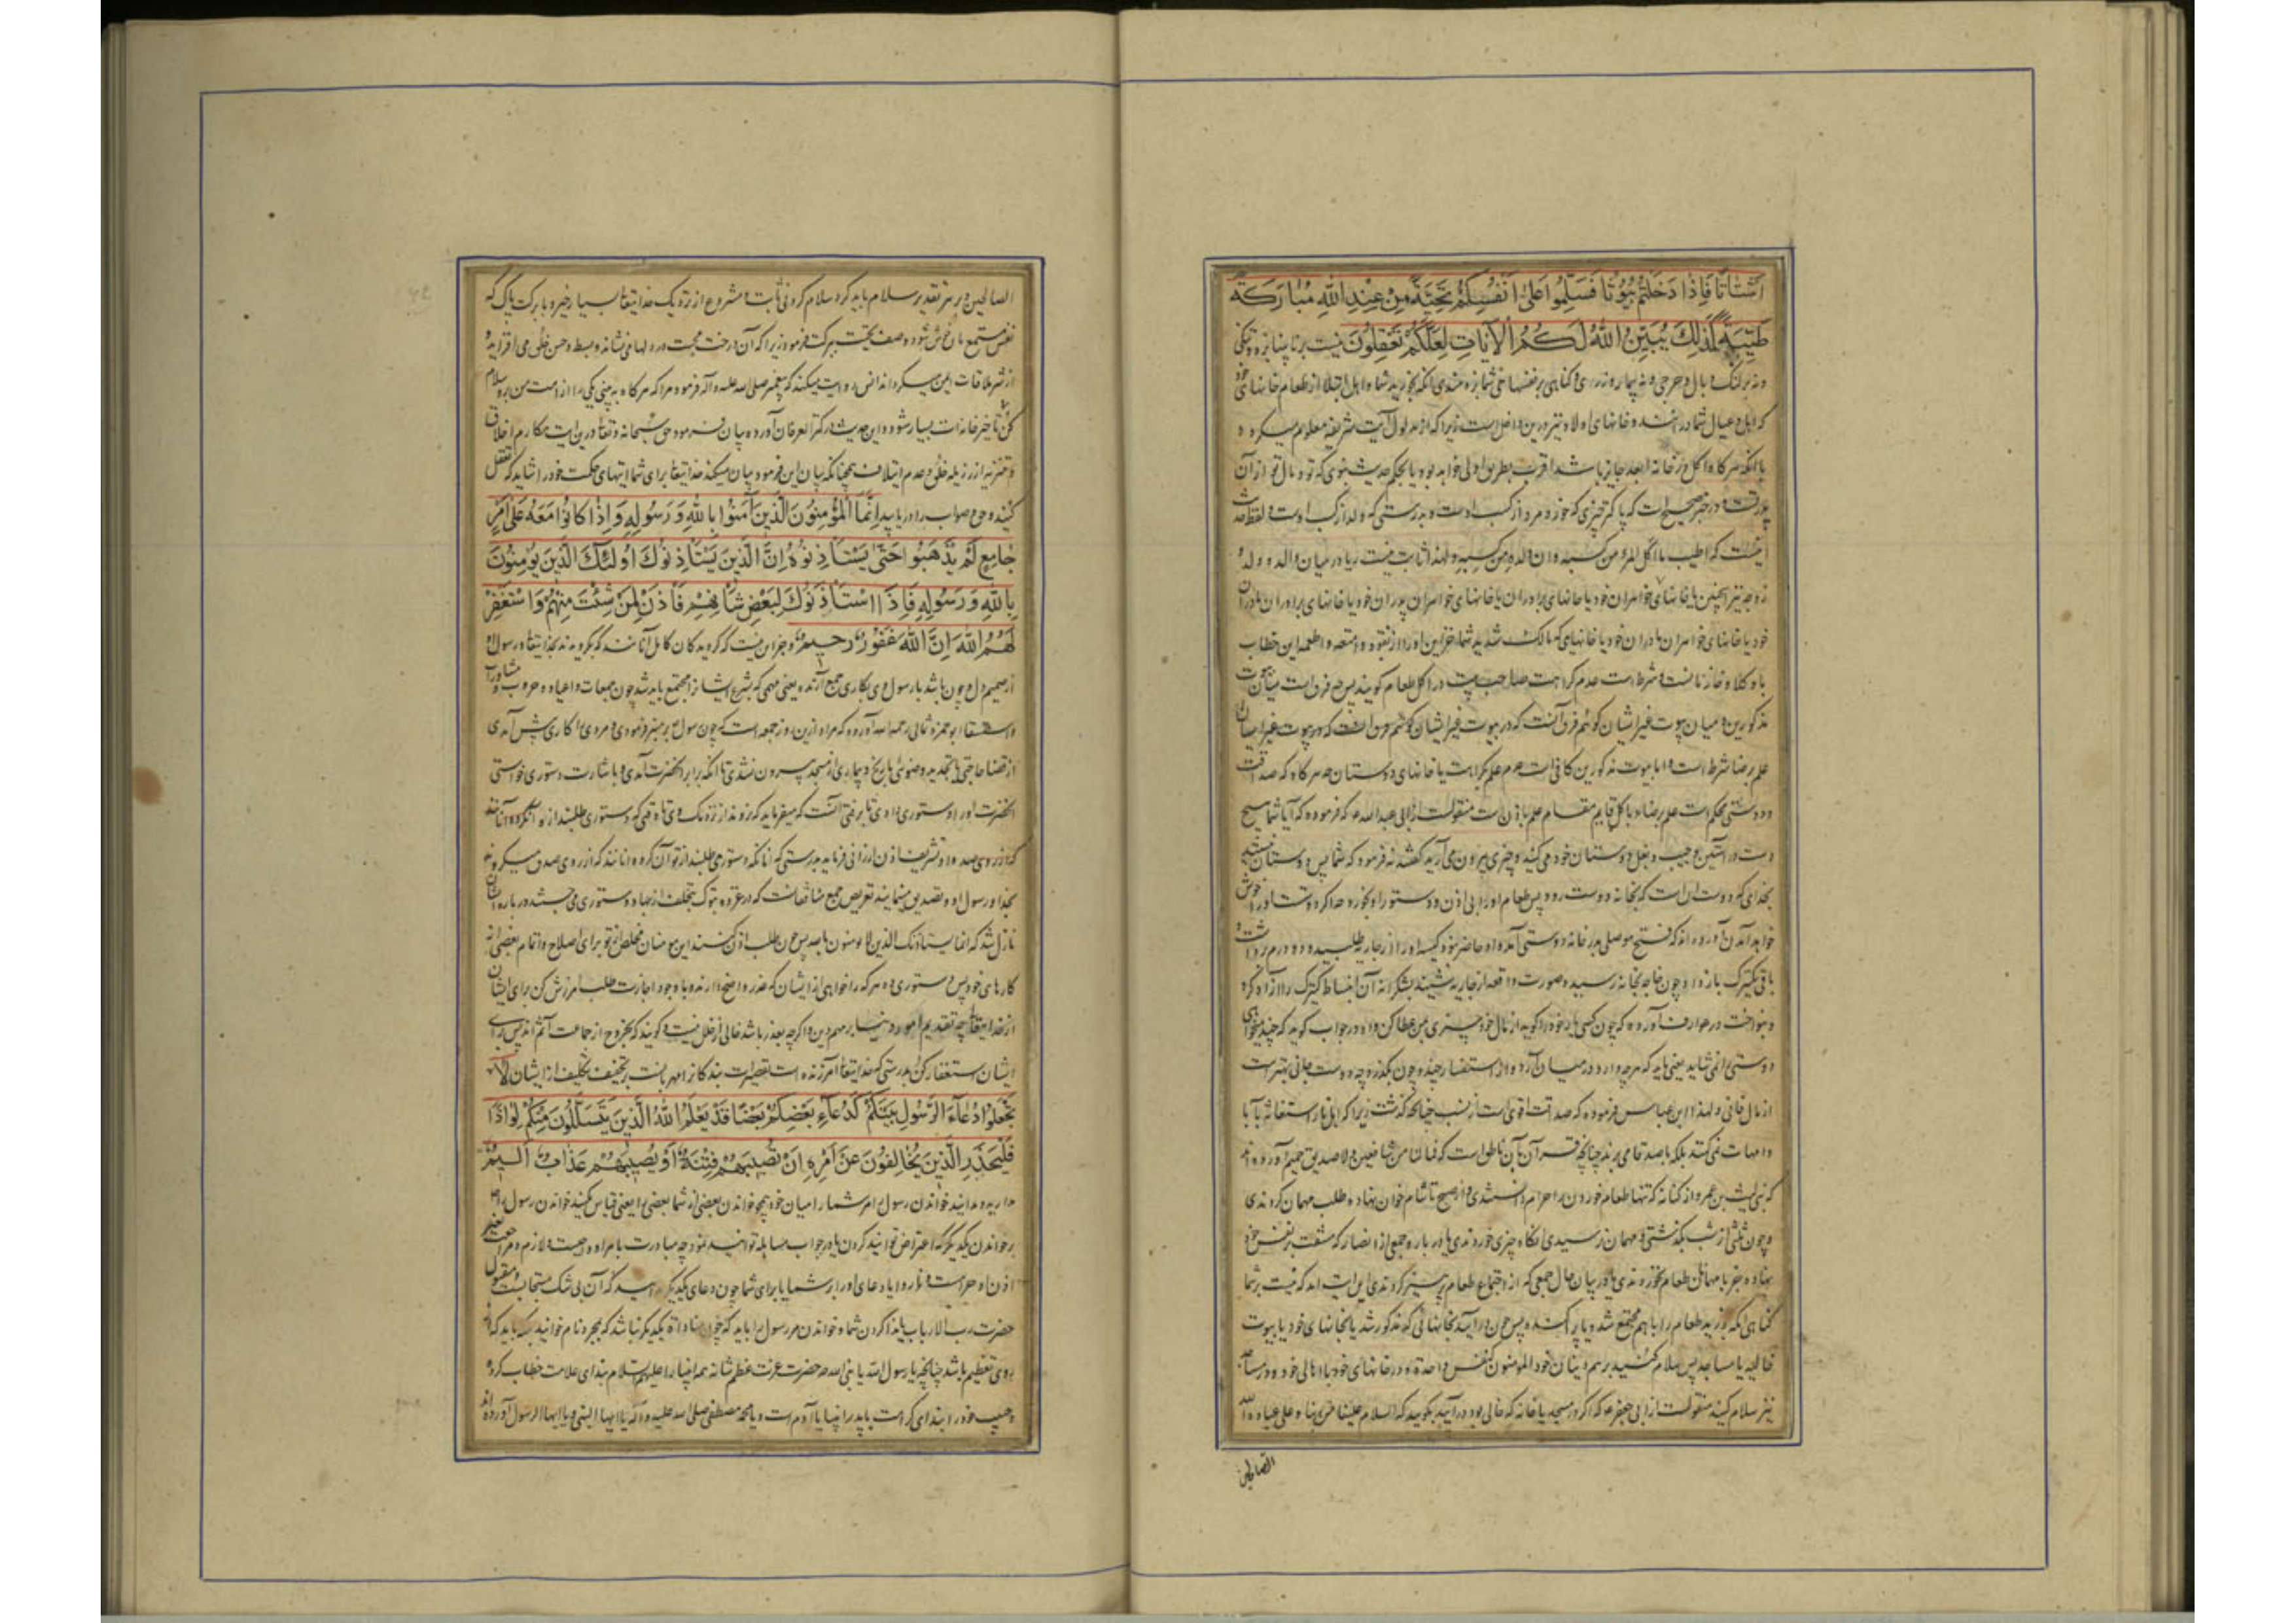 اَشْتَاتًا فَاِذَا دَخَلْتُمْ بُيُوتًا فَسَلِّمُوا عَلٰى اَنْفُسِكُمْ تَحِيَّةً مِنْ عِنْدِ اللهِ مُبَارَكَةً
طَيِّبَةً كَذٰلِكَ يُبَيِّنُ اللهُ لَكُمُ الْآيَاتِ لَعَلَّكُمْ تَعْقِلُونَ نیست بر نابینا بزه و تنکی
و نه بر لنک وبال و حرجی و نه بیمار و زر کناهی بر نفسهای شما بزه مندی آنکه بخورید شما و اهل ابتلا از طعام خانهای خود
که اهل و عیال شما در آنند و خانهای اولاد نیز درین داخل است زیرا که از مدلول آیت شریفه معلوم میکردد
با آنکه هر کاه اکل از خانه ابعد جایز باشد اقرب بطریق اولی خواهد بود یا بحکم حدیث نبوی که تو و مال تو از آن
پدر تست و در خبر صحیح است که پاکتر چیزی که خورد مرد از کسب اوست و بدرستی که ولد از کسب اوست و لفظ حدیث
اینست که اطیب ما اکل المرء من کسبه وان ولده من کسبه ولهذا ثابت نیست ربا در میان والد و ولد و
زوجه نیز همچنین یا خانهای خواهران خود یا خانهای برادران یا خانهای خواهران پدران خود یا خانهای برادران مادران
خود یا خانهای خواهران مادران خود یا خانهایی که مالک شدید شما خزاین او را از نقود و امتعه و اطعمه این خطاب
با وکلا و خازنانست و شرط است عدم کراهت صاحب بیت در اکل طعام کویند پس چه فرق است میان بیوت
مذکورین و میان بیوت غیر ایشان کوئیم فرق آنست که در بیوت غیر ایشان
علم برضا شرط است و اما بیوت مذکورین کافی است عدم علم بکراهت یا خانهای دوستان چه هر کاه که صداقت
و دوستی محکم است علم برضاء باکل قایم مقام علم باذن است منقولست از ابی عبدالله ع که فرمود که آیا شما هیچ
دست در آستین و جیب و بغل دوستان خود می کنید و چیزی بیرون می آرید کفتند نه فرمود که شما پس دوستان نیستید
بخدای که دوست آن است که بخانه دوست رود پس طعام او را بی اذن و دستور او بخورد چدا کر دوست او را خوش
خواهد آمدن آورده اند که فتح موصلی بدر خانه دوستی آمد او حاضر نبود کیسه او را از جاریه طلبید و دو درم برداشت و
باقی بکنیزک باز داد چون خواجه بخانه رسید و صورت واقعه از جاریه شنید بشکرانه آن انبساط کنیزک را آزاد کرد
و بنواخت در عوارف آورده که چون کسی یار خود را کوید از مال خود چیزی بمن عطا کن و او در جواب کوید که چند میخواهی
دوستی را نمی شاید یعنی باید که هر چه دارد در میان آرد و از استفسار چند و چون بکذرد چه دوست جانی بهتر است
از مال فانی و لهذا ابن عباس فرموده که صداقت اقوی است از نسب چنانچه کذشت زیرا که اهل نار استغاثه بآبا
و امهات نمی کنند بلکه باصدقا می برند چنانچه قرآن بآن ناطق است که فما لنا من شافعین ولا صدیق حمیم آورده اند
که بنی لیث بن عمرو از کنانه که تنها طعام خوردن را حرام دانستندی و از صبح تا شام خوان نهاده طلب مهمان کردندی
و چون ثلثی از شب بکذشتی و مهمان نرسیدی آنکاه چیزی خوردندی یا در باره جمعی از انصار که مشقت بر نفس خود
نهاده جز با مهمان طعام نخوردندی یا در بیان حال جمعی که از اجتماع طعام پرهیز کردندی این آیت آمد که نیست بر شما
کناهی آنکه بخورید طعام را با هم مجتمع شده یا پراکنده پس چون درآیید بخانهائی که مذکور شد یا بخانهای خود یا بیوت
خالیه یا مساجد پس سلام کنید بر هم دینان خود المؤمنون کنفس واحدة و در خانهای خود با اهالی خود و در مساجد
نیز سلام کنید منقولست از ابی جعفر ع که اکر در مسجد یا خانه که خالی بود درآیید بکویید که السلام علینا من ربنا و علی عباد الله
الصالحین
الصالحین و بر هر تقدیر سلام باید کرد سلام کردنی ثابت و مشروع از نزدیک خدایتعالی بسیار خیر و با برکت پاک که
نفس مستمع بآن خوش شود و وصف تحیت ببرکت فرمود زیرا که آن درخت محبت در دلها می نشاند و بسط و حسن خلق می افزاید و
از شر ملاقات ایمن میکرداند انس روایت میکند که پیغمبر صلی الله علیه وآله فرمود مرا که هر کاه به بینی یکی را از امت من برو سلام
کن تا خیر خانه ات بسیار شود و این حدیث در کنز العرفان آورده بیان فرمود حق سبحانه وتعالی درین آیت مکارم اخلاق
و تنزیه از رزیله خلق و عدم ایتلاف همچنانکه بیان این فرمود بیان میکند خدایتعالی برای شما آیتهای حکمت خود را شاید که تعقل
کنید و حق و صواب را دریابید اِنَّمَا الْمُؤْمِنُونَ الَّذِينَ آمَنُوا بِاللهِ وَرَسُولِهِ وَاِذَا كَانُوا مَعَهُ عَلٰى اَمْرٍ
جَامِعٍ لَمْ يَذْهَبُوا حَتّٰى يَسْتَأْذِنُوهُ اِنَّ الَّذِينَ يَسْتَأْذِنُونَكَ اُولٰئِكَ الَّذِينَ يُؤْمِنُونَ
بِاللهِ وَرَسُولِهِ فَاِذَا اسْتَأْذَنُوكَ لِبَعْضِ شَأْنِهِمْ فَأْذَنْ لِمَنْ شِئْتَ مِنْهُمْ وَاسْتَغْفِرْ
لَهُمُ اللهَ اِنَّ اللهَ غَفُورٌ رَحِيمٌ جز این نیست که کرویدکان کامل آنانند که بکرویدند بخدایتعالی و رسول او
از صمیم دل و چون باشد با رسول وی بکاری جمع آرنده یعنی مهمی که بشرع ایشان را مجتمع باید شد چون جمعات و اعیاد و حروب و مشاورات
و استسقا ابوحمزه ثمالی رحمه الله آورده که مراد ازین روز جمعه است که چون رسول بر منبر فرمودی و مردی را کاری پیش آمدی
از قضا حاجتی یا تجدید وضوئی یا رنج و بیماری از مسجد بیرون نشدی تا آنکه برابر آنحضرت آمدی و باشارت دستوری خواستی
آنحضرت او را دستوری دادی تا برفتی آنست که میفرماید که نروند از نزدیک وی تا وقتی که دستوری طلبند از و آنکروه آنانند
که از روی صد و تشریف اذن ارزانی فرماید بدرستی که آنانکه دستوری طلبند از تو آن کروه آنانند که از روی صدق میکروند
بخدا و رسول او و تصدیق مینمایند تعریض جمع منافقانست که در غزوه تبوک بتخلف از جهاد دستوری می جستند در باره ایشان
نازل شد که انما یستاذنک الذین لا یؤمنون بالله پس چون طلب اذن کنند این مومنان مخلص از تو برای اصلاح و اتمام بعضی از
کارهای خود پس دستوری ده هر که را خواهی از ایشان که عذر واضح دارند و با وجود اجازت طلب آمرزش کن برای ایشان
از خدایتعالی چه تقدیم امور دنیا بر مهم دین اکر چه بعذر باشد خالی از خلل نیست و کویند که بخروج از جماعت آثم اند پس برای
ایشان استغفار کن بدرستی که خدایتعالی آمرزنده است تقصیرات بندکان را مهربانست بتخفیف تکلیف از ایشان لَا
تَجْعَلُوا دُعَاءَ الرَّسُولِ بَيْنَكُمْ كَدُعَاءِ بَعْضِكُمْ بَعْضًا قَدْ يَعْلَمُ اللهُ الَّذِينَ يَتَسَلَّلُونَ مِنْكُمْ لِوَاذًا
فَلْيَحْذَرِ الَّذِينَ يُخَالِفُونَ عَنْ اَمْرِهِ اَنْ تُصِيبَهُمْ فِتْنَةٌ اَوْ يُصِيبَهُمْ عَذَابٌ اَلِيمٌ
مدارید و مدانید خواندن رسول مر شما را میان خود همچو خواندن بعضی از شما بعضی را یعنی قیاس مکنید خواندن رسول را
بر خواندن یکدیکر که اعتراض توانید کردن یا در جواب مساهله توانید نمود چه مبادرت بامر او واجب و لازم و مراجعت بغیر
اذن او حرام است و ناروا یا دعای او را بر شما یا برای شما چون دعای یکدیکر که آن بی شک مستجابست و مقبول
حضرت رب الارباب یا ندا کردن شما و خواندن مر رسول را باید که چون مناداة یکدیکر نباشد که بمجرد نام خوانید بلکه باید که از
روی تعظیم باشد چنانچه یا رسول الله یا نبی الله چه حضرت عزت عظم شانه همه انبیا را علیهم السلام بندای علامت خطاب کرده
و حبیب خود را بندای کرامت یا آدم است و یا محمد مصطفی صلی الله علیه وآله یا ایها النبی و یا ایها الرسول آورده اند